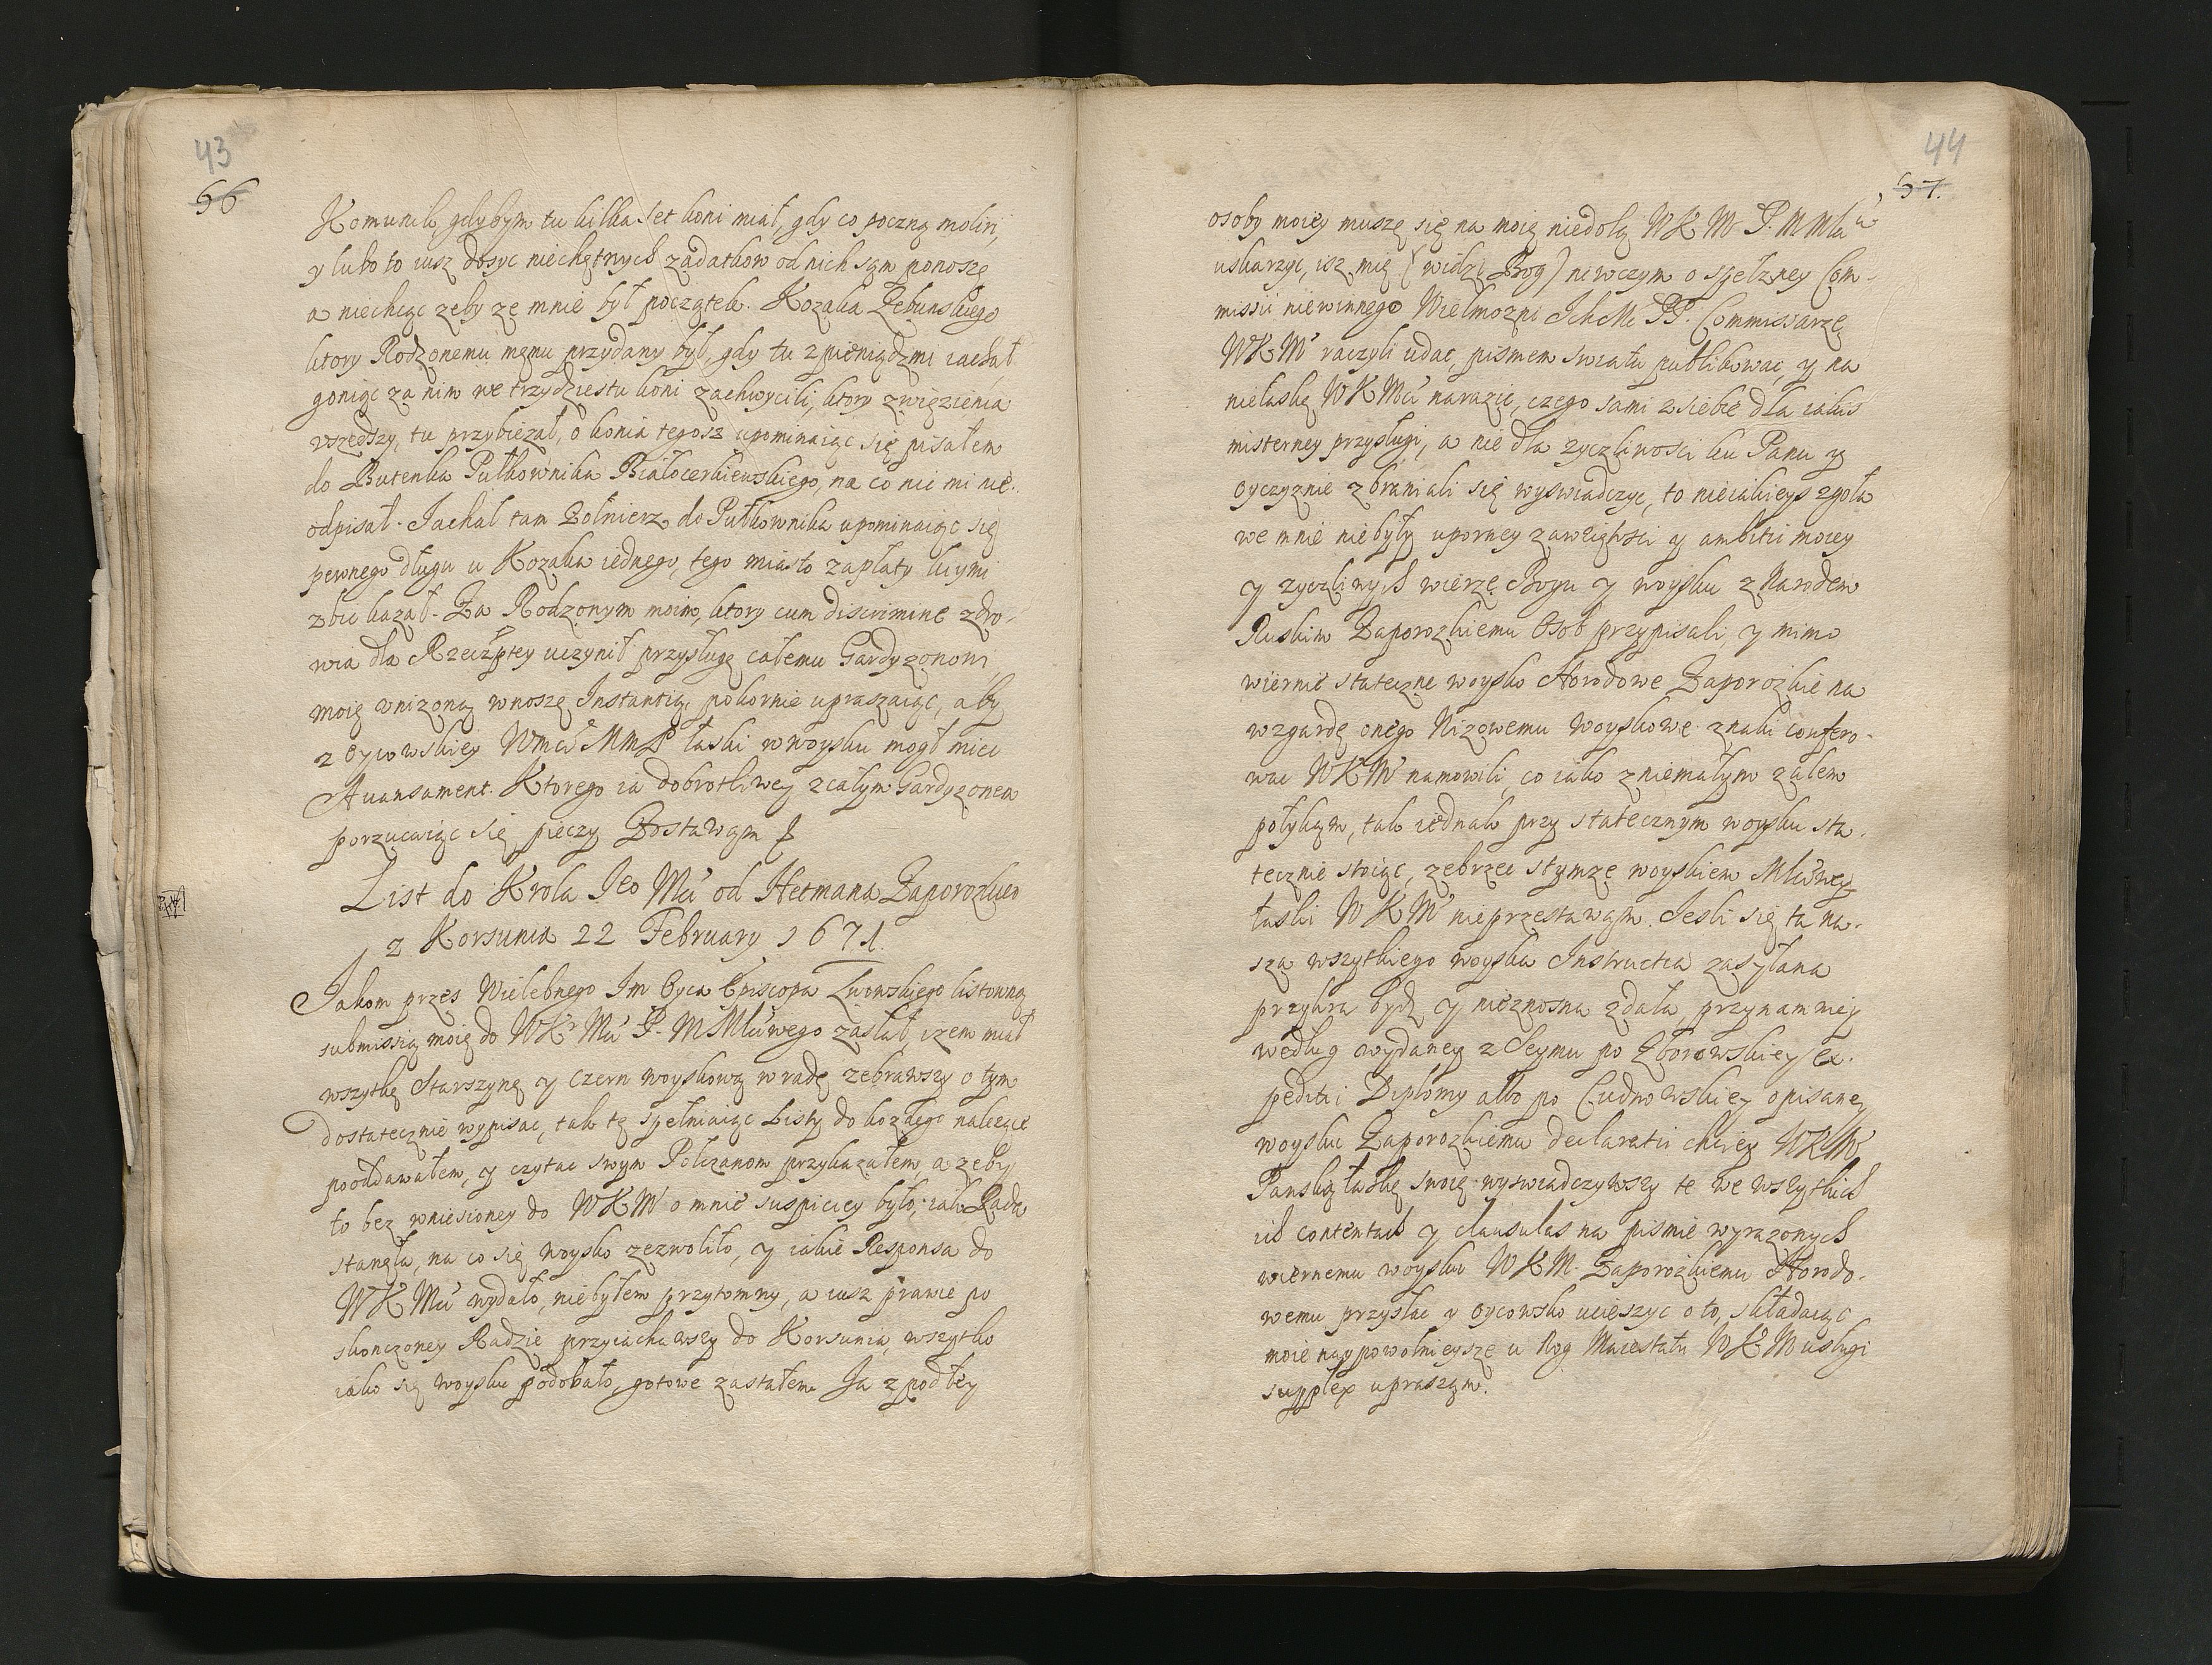 43
56
Komunik, gdybym tu kilka set koni miał, gdy co poczną moliri,
y lubo to iusz dosyc niechętnych zadatkow od nich sąm ponoszę
a niechcąc zeby ze mnie był początek. Kozaka Zebunskiego
ktory Rodzonemu męmu przydany był, gdy tu z pieniądzmi iachał
goniąc za nim we trzydziestu koni zachwycili, ktory zwięzienia
vszedszy, tu przybiezał, o konia tegosz upominaiąc się pisałem
do Butenka Pułkownika Białocerkiewskiego, na co nic mi nie
odpisał. Iachał tam Zołnierz do Pułkownika upominaiąc się
pewnego długu u Kozaka iednego, tego miasto zapłaty kiymi
zbic kazał. Za Rodzonym moim, ktory cum discrimine zdro-
wia dla Rzeczptey uczynił przysługę całemu Gardyzonowi
moię vnizoną wnoszę Instantią, pokornie upraszaiąc, aby
z oycowskiey Wmci MmP łaski w woysku mogł miec
Auansament. Ktorego ia dobrotliwey z całym Gardyzonem
porzucaiąc się pieczy Zostawąm
List do Krola Ieo Mci od Hetmana Zaporozkieo
z Korsunia 22 February 1671.
Iakom przes Wielebnego Im Oyca Episcopa Lwowskiego listowną
submissią moię do WKr Mci P. M Mciwego zasłał, izem miał
wszytkę Starszynę y Czern woyskową w radę zebrawszy o tym
dostatecznie wypisac, tak tę spełniaiąc Listy do kozdego nalezące
pooddawałem, y czytac swym Połczanom przykazałem, a zeby
to bez wniesioney do WKM o mnie suspiciey było, iak Rada
stanęła, na co się woysko zezwoliło, y iakie Responsa do
WKMci wydało, niebyłem przytomny, a iusz prawie po
skonczoney Radzie przyiachawszy do Korsunia, wszytko
iako się woysku podobało, gotowe zastałem Ia z podłey
44
57.
osoby moiey muszę się na moię niedolą WKM P. M Mciu
uskarzyc, isz mię (widzi Bog) niwczym o spełzney Com-
missii niewinnego Wielmozni Ich Mc PP. Commissarze
WKM raczyli udac, pismem swiatu publikowac, y na
niełaskę WKMci narazic, czego sami z siebie dla iakis
misterney przysługi, a nie dla zyczliwosci ku Panu y
oyczyznie zbraniali się wyswiadczyc, to nieiakieys zgoła
we mnie niebyły uporney zawziętosci y ambitii moiey
y zyczliwych wierze Bogu y woysku z Narodem
Ruskim Zaporozkiemu Osob przypisali, y mimo
wiernie stateczne woysko Horodowe Zaporozkie na
wzgardę onego Nizowemu woyskowe znaki confero-
wac WKM namowili, co iako z niemałym zalem
połykąm, tak iednak przy statecznym woysku sta-
tecznie stoiąc, zebrzec stymze woyskiem Mciwey
łaski WKM nieprzestawąm. Iesli się ta na-
sza wszytkiego woyska Instructia zasyłana
przykra bydz y nieznosna zdała, przynamniey
według wydaney z Seymu po Zborowskiey ex-
peditii Diplomy albo po Cudnowskiey opisaney
woysku Zaporozkiemu declaratii chciey WKM
Panską łaskę swoię wyswiadczywszy te we wszytkich
ich contentach y clausulas na pismie wyrazonych
wiernemu woysku WKM Zaporozkiemu Horodo-
wemu przysłac y oycowsko ucieszyc o to, składaiąc
moie naypowolnieysze u Nog Maiestatu WKM usługi
supplex uprasząm.